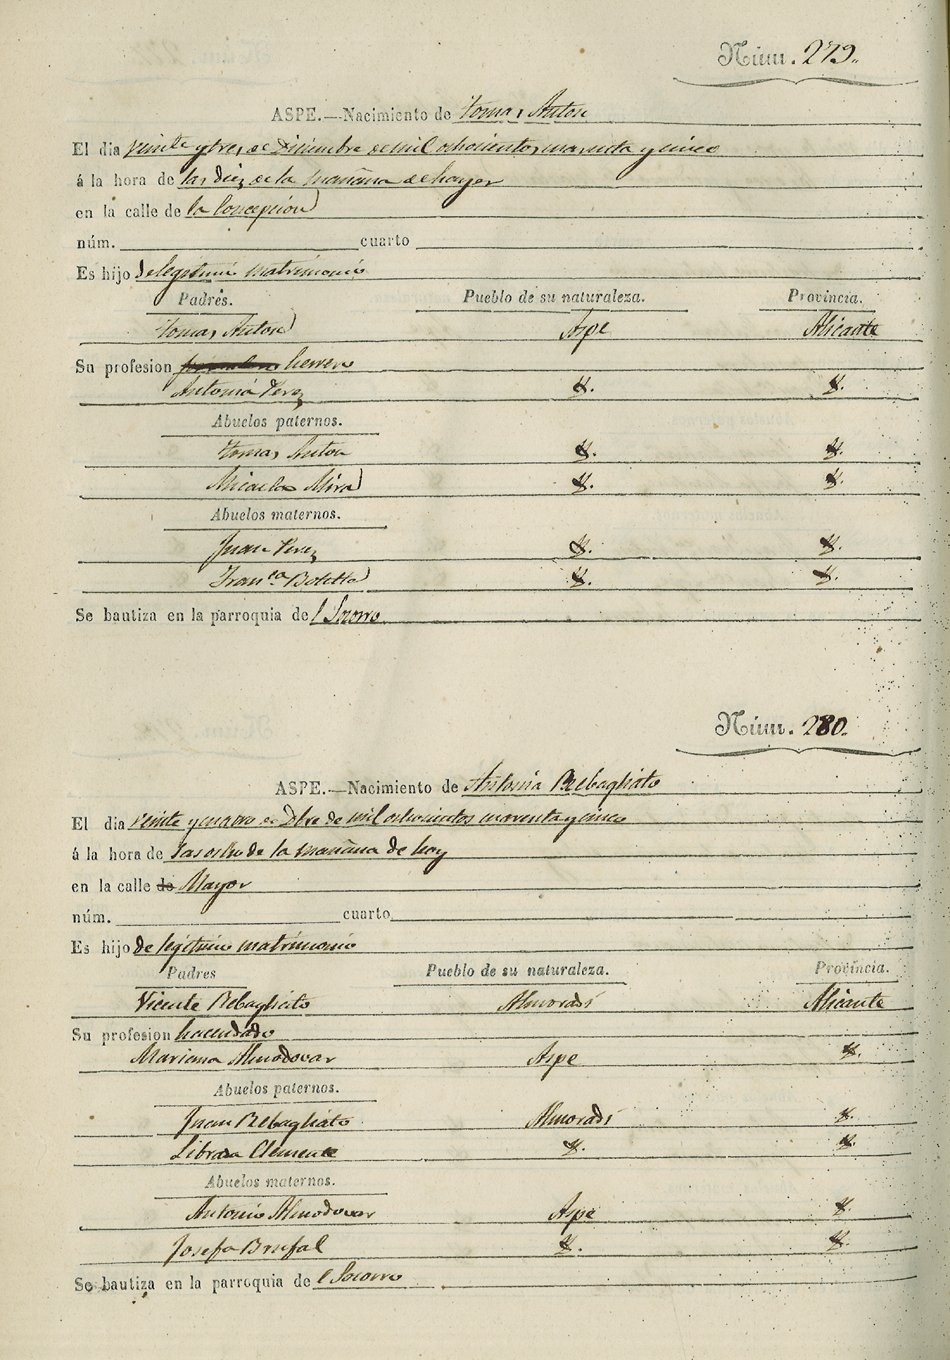 Núm. 279.
ASPE.—Nacimiento de Tomas Anton
El dia veinte y tres de Diciembre de mil ochocientos noventa y cinco
á la hora de las diez de la mañana de hoyer
en la calle de la Concepcion
núm. cuarto
Es hijo de legitimo matrimonio
Padres. Pueblo de su naturaleza. Provincia.
Tomas Anton Aspe Alicante
Su profesion herrero
Antonia Perez Y. Y.
Abuelos paternos.
Tomas Anton Y. Y.
Micaela Mira Y. Y.
Abuelos maternos.
Juan Perez Y. Y.
Fran.ca Botella Y. Y.
Se bautiza en la parroquia del Socorro
Núm. 280.
ASPE.—Nacimiento de Antonia Rebagliato
El dia veinte y cuatro de Dbre de mil ochocientos noventa y cinco
á la hora de las ocho de la mañana de hoy
en la calle de Mayor
núm. cuarto
Es hijo de legitimo matrimonio
Padres Pueblo de su naturaleza. Provincia.
Vicente Rebagliato Almoradi Alicante
Su profesion hacendado
Mariana Almodovar Aspe Y.
Abuelos paternos.
Juan Rebagliato Almoradi Y.
Librada Clemente Y. Y.
Abuelos maternos.
Antonio Almodovar Aspe Y.
Josefa Brufal Y. Y.
Se bautiza en la parroquia del Socorro